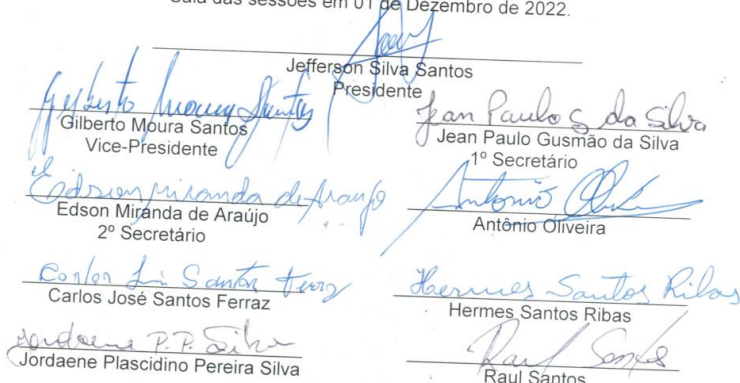 Sala das sessões em 01 de Dezembro de 2022.
Jefferson Silva Santos
Presidente
Gilberto Moura Santos
Gilberto Moura Santos
Vice-Presidente
Jean Paulo G da Silva
Jean Paulo Gusmão da Silva
1º Secretário
Edson miranda de Araujo
Edson Miranda de Araújo
2º Secretário
Antonio
Antônio Oliveira
Carlos José Santos Ferraz
Carlos José Santos Ferraz
Hermes Santos Ribas
Hermes Santos Ribas
Jordaene P.P. Silva
Jordaene Plascidino Pereira Silva
Raul Santos
Raul Santos